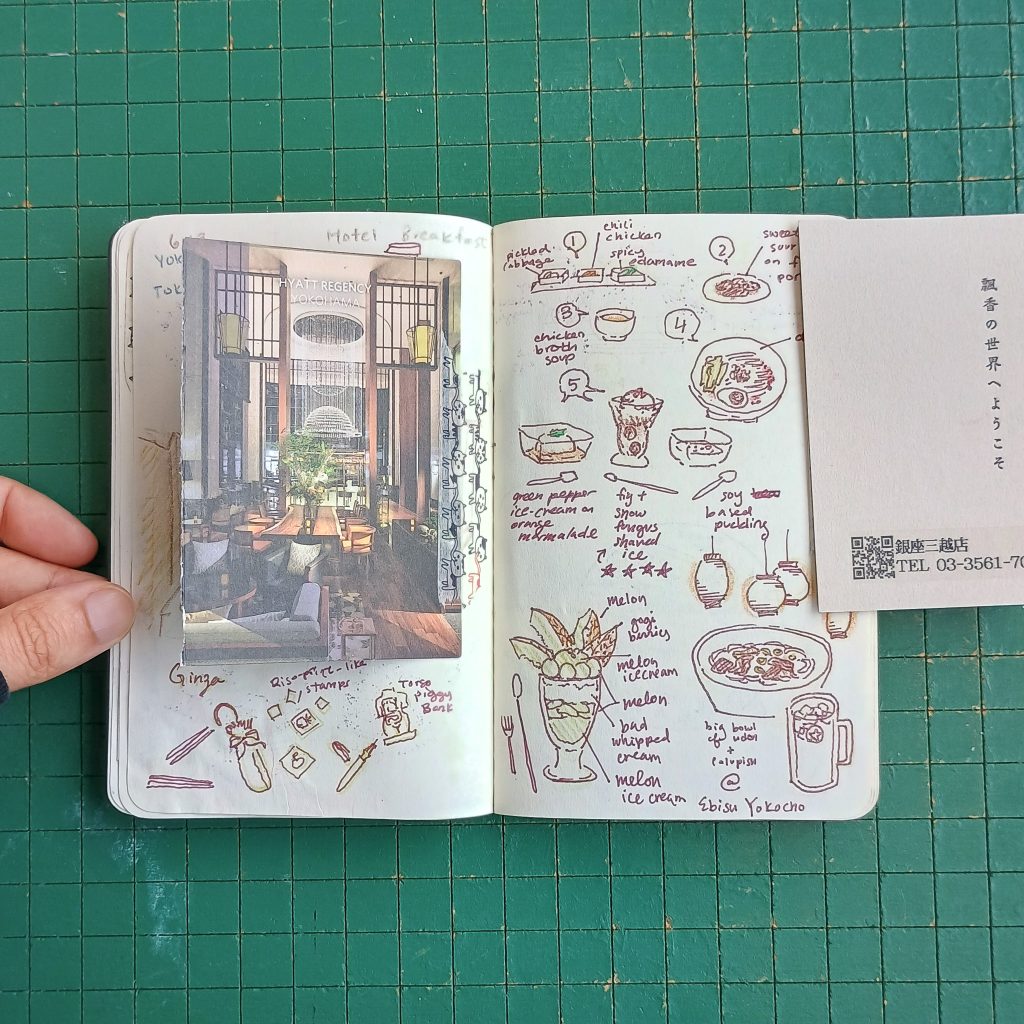 Hotel Breakfast
HYATT REGENCY
YOKOHAMA
Ginza
Riso-print-like
stamps
Torso
piggy
Bank
1
chili
chicken
pickled
cabbage
spicy
edamame
2
sweet
sour
on
3
chicken
broth
soup
4
5
green pepper
ice-cream on
orange
marmalade
fig +
snow
fungus
shaved
ice
soy
based
pudding
melon
gogi
burries
melon
icecream
melon
bad
whipped
cream
melon
ice cream
big bowl
of udon
+
calupish
@
Ebisu Yokocho
飄香の世界へようこそ
銀座三越店
TEL 03-3561-70